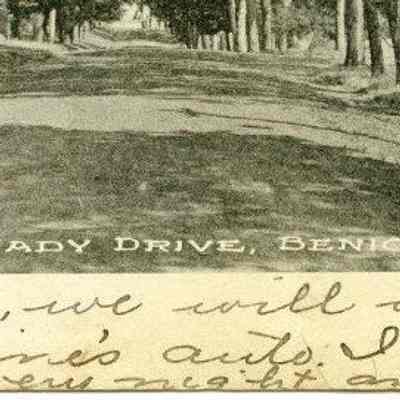 ADY DRIVE, BENIC
, we will
ine's auto. I
very night an